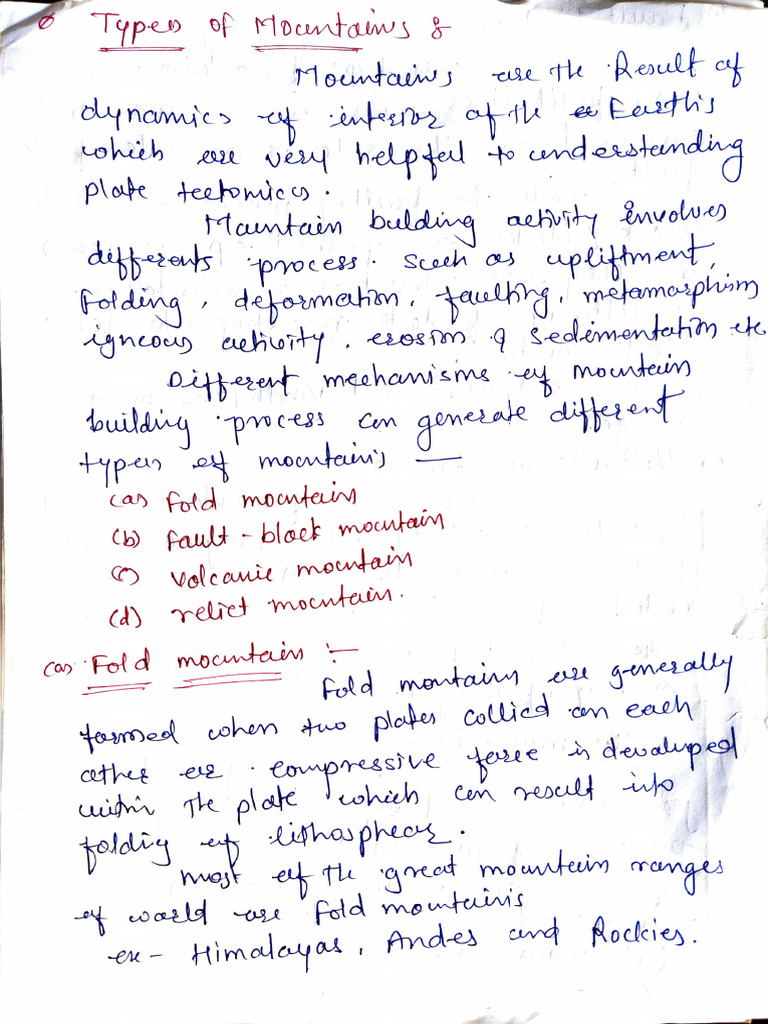 Types of Mountains :
Mountains are the Result of
dynamics of interior of the Earth's
which are very helpful to understanding
plate tectonics.
Mountain building activity involves
differents process. such as upliftment,
folding, deformation, faulting, metamorphism
igneous activity, erosion & sedimentation etc.
Different mechanisms of mountain
building process can generate different
types of mountains —
(a) Fold mountain
(b) fault-block mountain
(c) volcanic mountain
(d) relict mountain.
(a) Fold mountain :-
Fold mountains are generally
formed when two plates collied on each
other or compressive force is devaluped
within the plate which can result into
folding of lithosphear.
most of the great mountain ranges
of world are fold mountains
ex- Himalayas, Andes and Rockies.